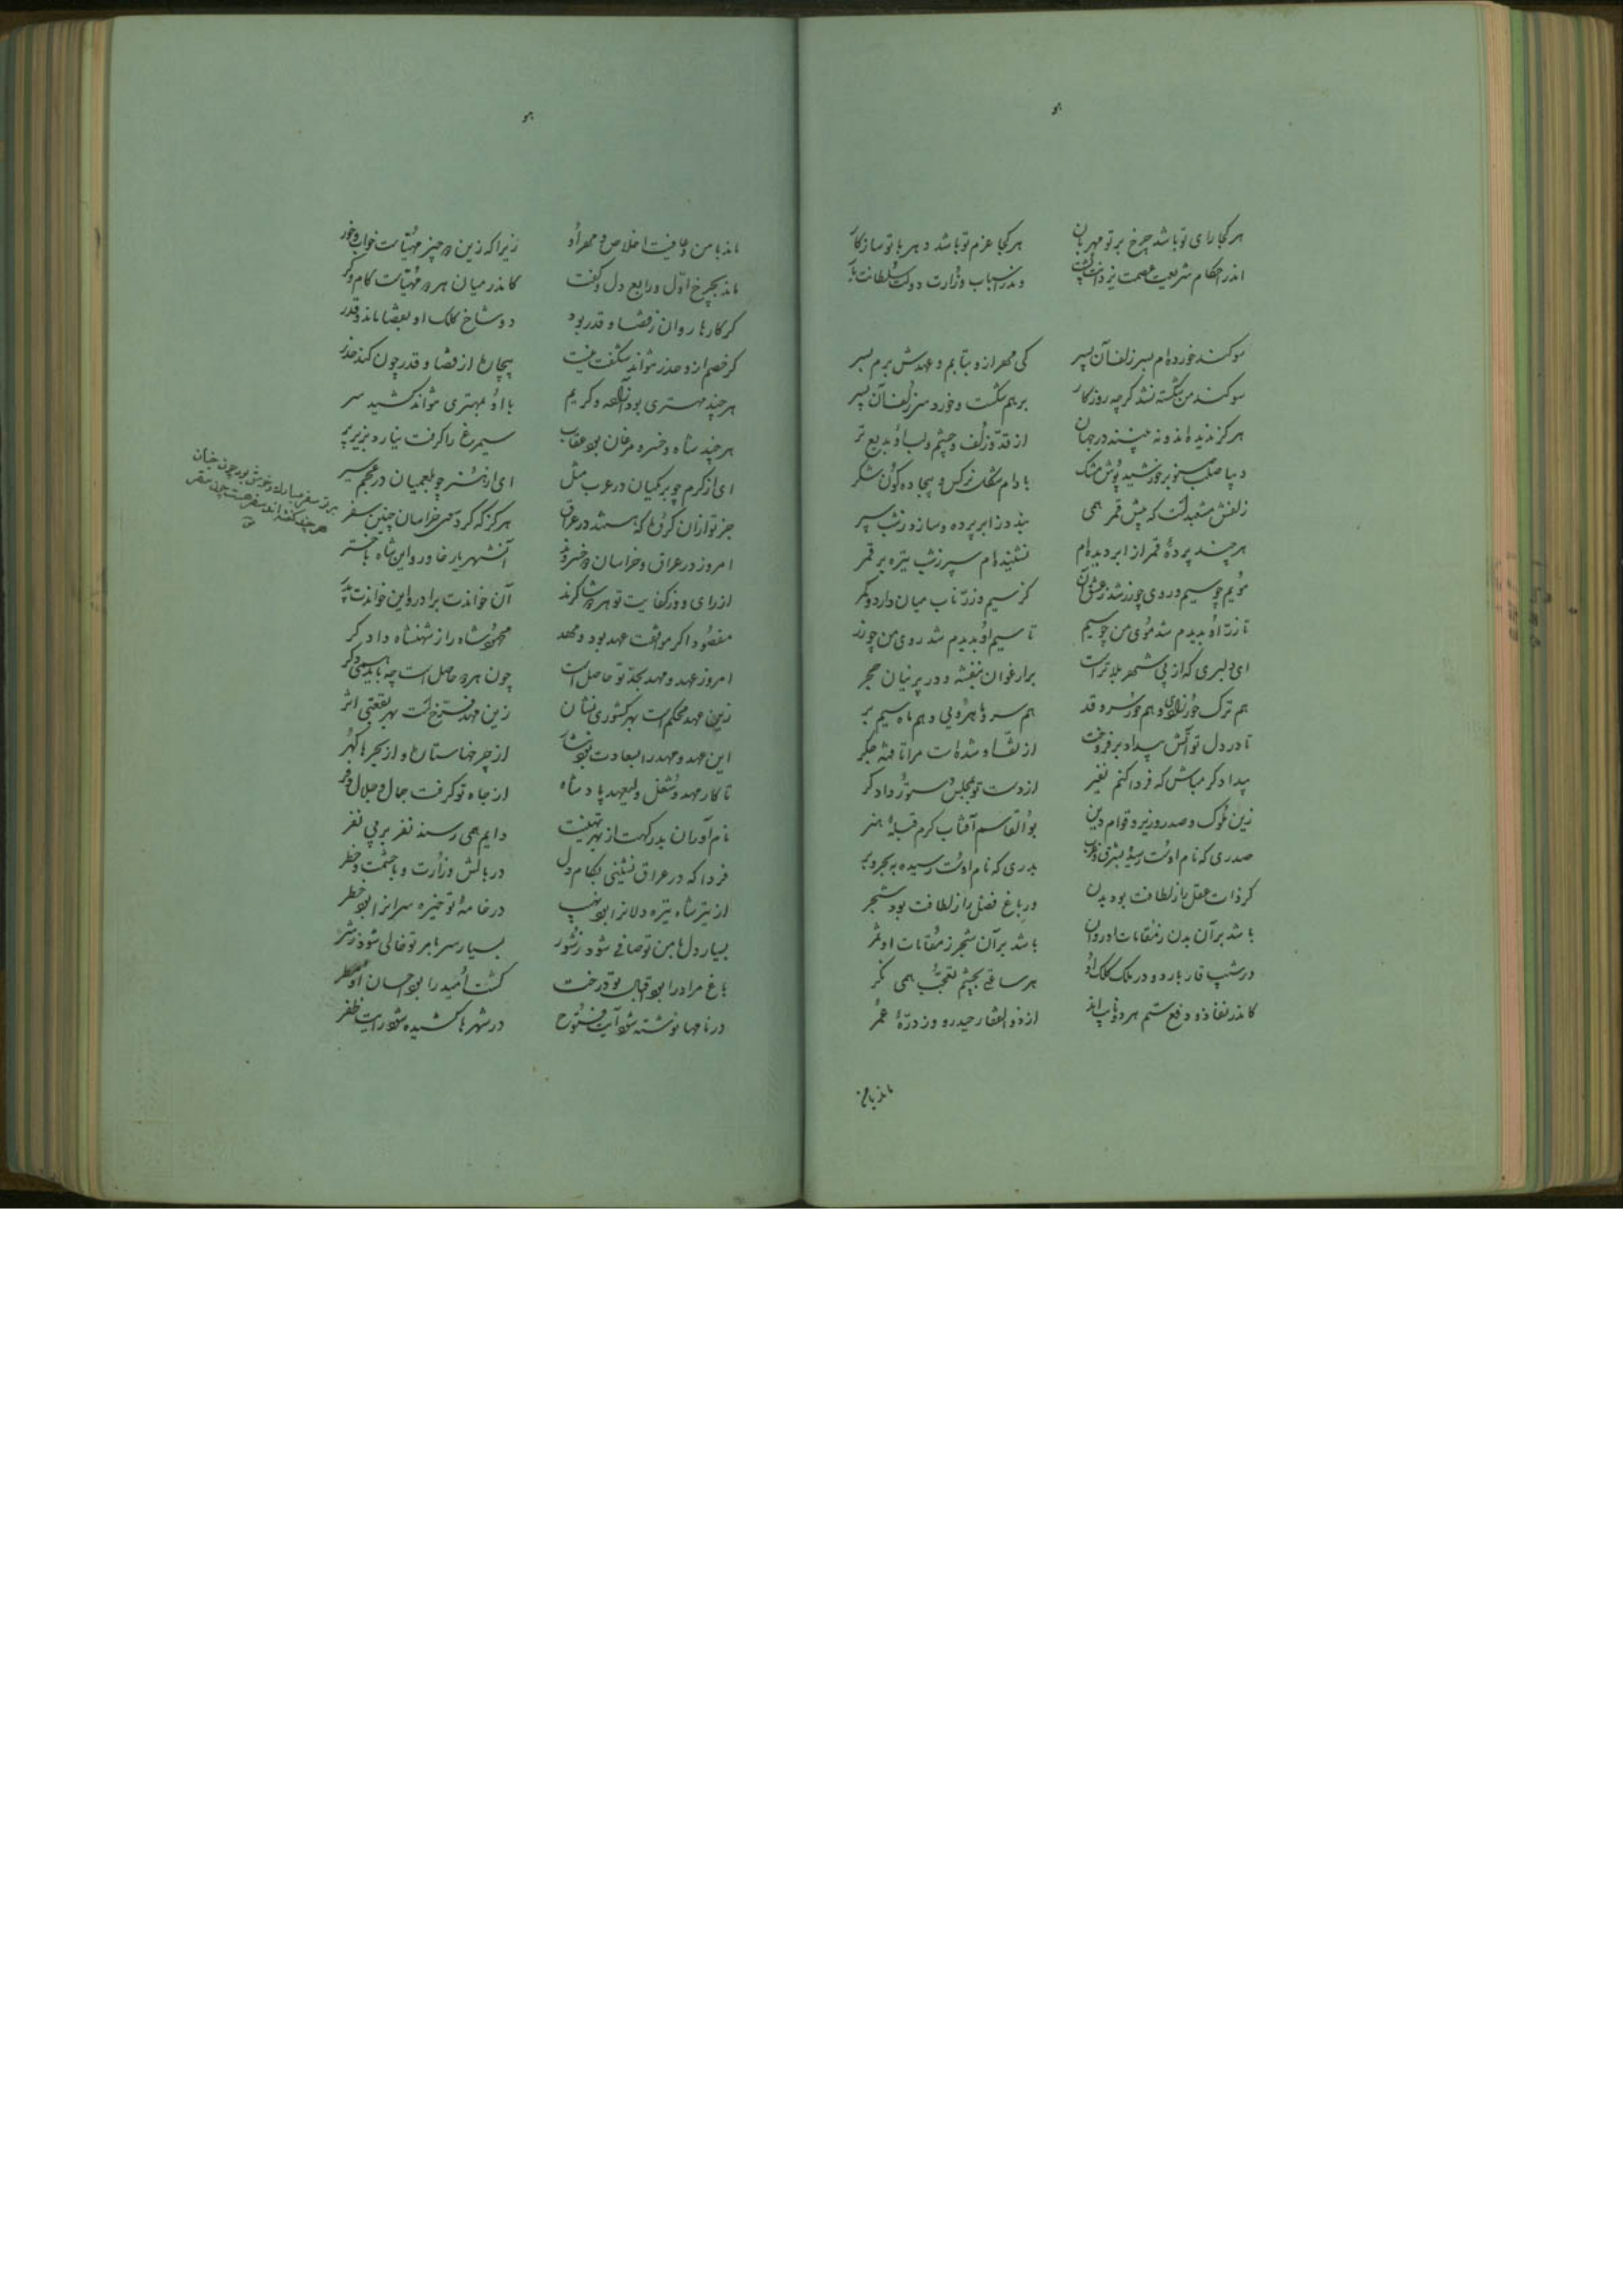 هو
هر کجا رای تو باشد چرخ بر تو مهربان هر کجا عزم تو باشد دهر با تو سازکار
اندر احکام شریعت عصمت یزدانت واندر اسباب وزارت دولت سلطانت
سوکند خورده‌ام بسر زلف آن پسر کی مهر ازو بتابم و عهدش برم بسر
سوکند من شکسته نشد کرچه روزکار برهم شکست و خورد سر زلف آن پسر
هرکز ندیده‌اند و نه بینند در جهان از قد و زلف و چشم و لب او بدیع تر
دیبا صلب صنوبر خورشید پوش مشک بادام شکل نرکس و بیجاده کون شکر
زلفش مشعبد است که پیش قمر همی بندد ز ابر پرده و سازد ز شب سپر
هرچند پردهٔ قمر از ابر دیده‌ام نشنیده‌ام سپر ز شب تیره بر قمر
مویم چو سیم و روی چو زر شد ز عشق آن کز سیم و زر ناب میان دارد و کمر
تا زر او بدیدم شد موی من چو سیم تا سیم او بدیدم شد روی من چو زر
ای دلبری که از پی شهر بلا تراست بر ارغوان بنفشه و در پرنیان حجر
هم ترک حورزادی و هم حور سرو قد هم سرو ماهرویی و هم ماه سیم بر
تا در دل تو آتش بیداد برفروخت از تف او شده‌است مرا تافته جکر
بیدادکر مباش که فردا کنم نفیر از دست تو بمجلس دستور دادکر
زین ملوک و صدر وزیر و قوام دین بوالقاسم آفتاب کرم قبلهٔ هنر
صدری که نام اوست رسیده بشرق و غرب بدری که نام اوست رسیده به بحر و بر
کر ذات عقل باز لطافت بود بدن ور باغ فضل باز لطافت بود شجر
باشد بر آن بدن ز مقامات او روان باشد بر آن شجر ز مقامات او ثمر
در شب قار بارد و در ملک کلک او هر ساعتی بچشم تعجب همی نکر
کاندر نفاذ و دفع ستم هر دو نایب‌اند از ذوالفقار حیدر و وز درهٔ عمر
ماند با من
هو
ماند با من و عافیت اخلاص و مهر او زیرا که زین دو چیز مهیاست خواب و خور
ماند بچرخ اول و رابع دل و کفت کاندر میان هر دو مهیاست کام و کر
کر کارها روان ز قضا و قدر بود دو شاخ کلک او بقضا ماند و قدر
کر خصم ازو حذر نتواند شکفت نیست بیچاره از قضا و قدر چون کند حذر
هرچند مهتری بود و کریم با او بمهتری نتواند کشید سر
هرچند شاه و خسرو مرغان بود عقاب سیمرغ را کرفت نیارد بزیر پر
ای از کرم چو برمکیان در عرب مثل ای از هنر چو بلعمیان در عجم سمر
جز تو ازان کرٔه که هستند در عراق هرکز که کرد سوی خراسان چنین سفر
بر تو سفر مبارک و خوش بود چون جنان هرچند گفته‌اند سفر هست چون سقر
امروز در عراق و خراسان دو خسروند آن شهریار خاور و این شاه باختر
از رای و وز کفایت تو هر دو شاکرند آن خواندت برادر و این خواندت پدر
مقصود اکر موافقت عهد بود و مهد محمود شاه را ز شهنشاه دادکر
امروز عهد و مهد بجد تو حاصل است چون هر دو حاصل است چه باید همی دکر
زین عهد محکم است بهر کشوری نشان زین مهد فرخ است بهر بقعتی اثر
این عهد و مهد را بسعادت بود نثار از چرخها ستاره و از بحرها کهر
تا کار مهد و شغل ولیعهد پادشاه از جاه تو کرفت جمال و جلال و فر
نام‌آوران بدرکهت از بهر تهنیت دایم همی رسند نفر بر پی نفر
فردا که در عراق نشینی بکام دل در بالش وزارت و با حشمت و خطر
از تیر شاه تیره دلانرا بود نهیب در خامهٔ تو خیره سرانرا بود خطر
بسیار دل بمن تو صافی شود ز شور بسیار سر بامر تو خالی شود ز شر
باغ مراد را بود اقبال تو درخت کشت امید را بود احسان تو مطر
در نامها نوشته شود آیت فتوح در شهرها کشیده شود رایت ظفر